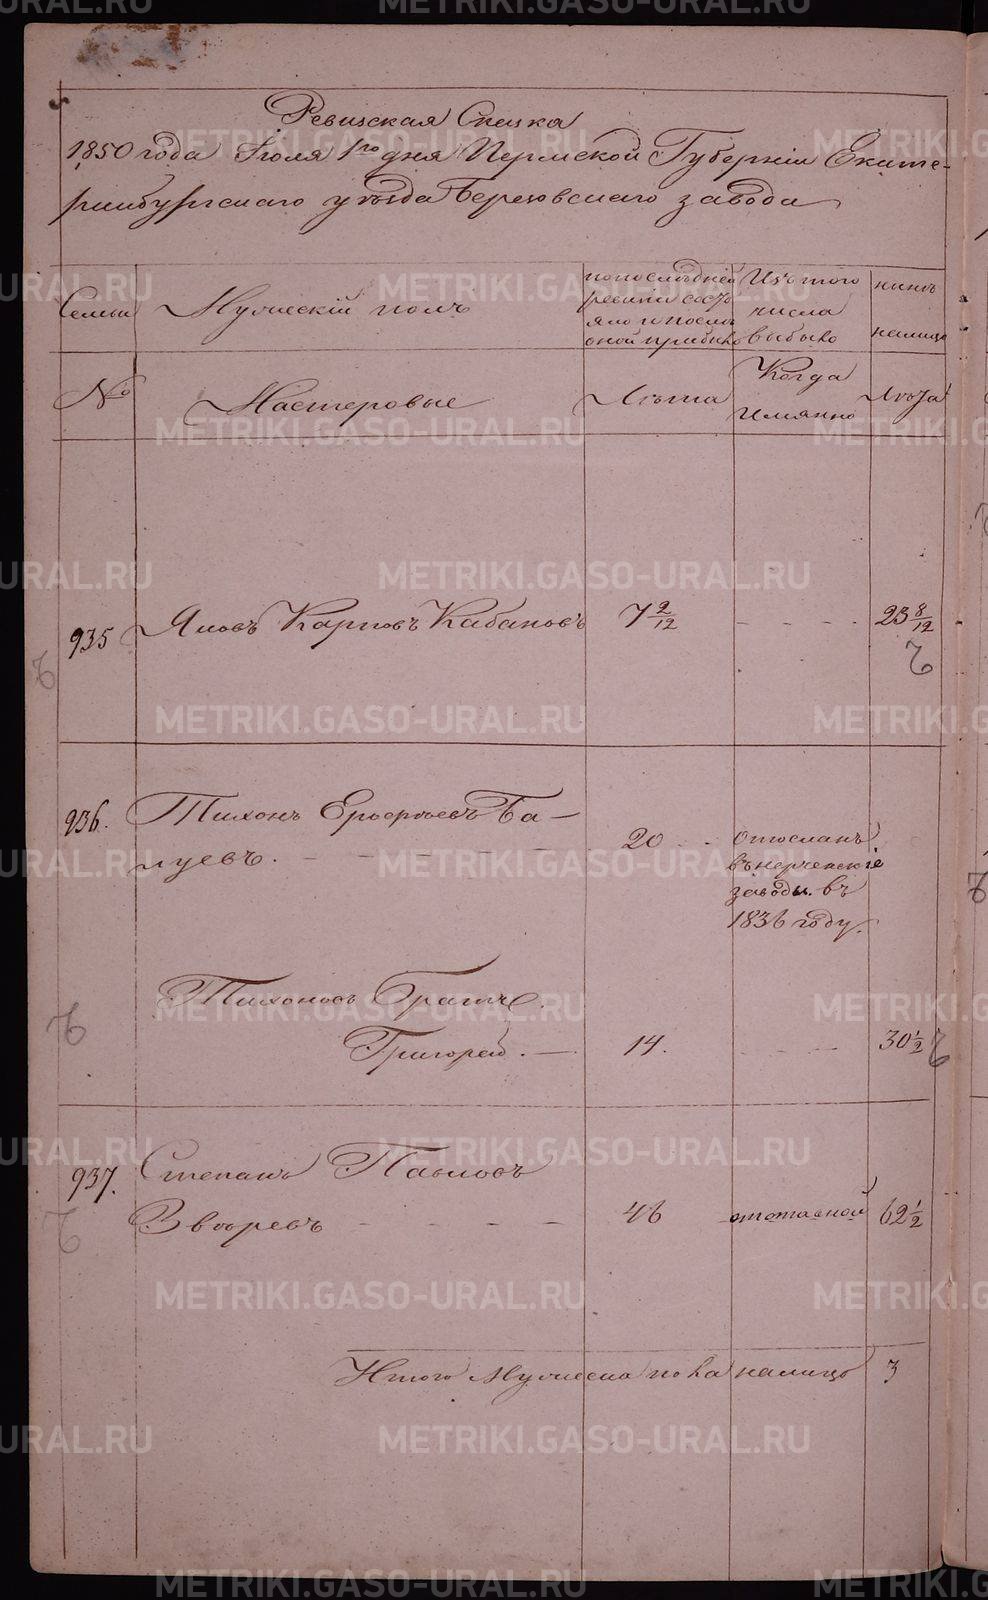 Ревизская Сказка
1850 года Іюля 1го дня Пермской Губерніи Екате-
ринбургскаго уѣзда Березовскаго завода
Семьи
Мужескій полъ
по послѣдней ревизіи состояло и послѣ оной прибыло
Изъ того числа выбыло
нынѣ налицо
№
Мастеровые
Лѣта
Когда имянно
Лѣта
935
Яковъ Карповъ Кабановъ
7 2/12
- - - -
23 8/12
936.
Тихонъ Ерофѣевъ Ба-
луевъ. - - - - - -
20 - -
отосланъ
въ нерченскіе
заводы въ
1836 году.
Тихоновъ Братъ
Григорей. -
14.
- - -
30 1/2
937.
Степанъ Павловъ
Звѣревъ - - - - -
46
отставной
62 1/2
Итого мужеска пола налицо
3
METRIKI.GASO-URAL.RU